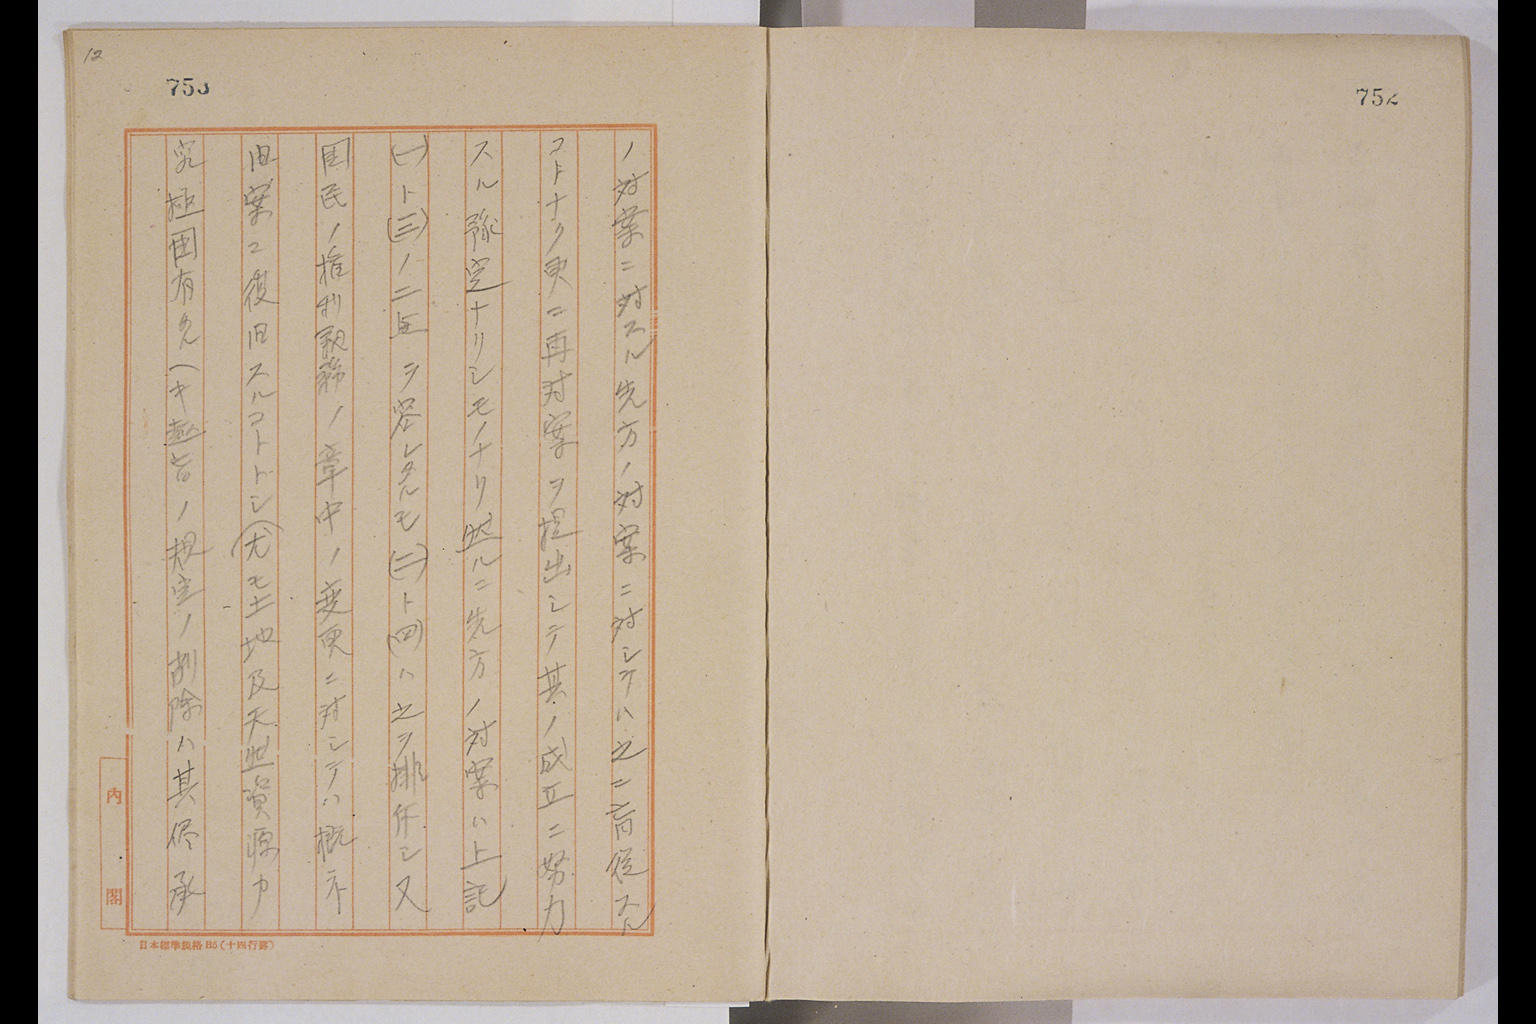 752
12
753
ノ対案ニ対スル先方ノ対案ニ対シテハ之ニ盲従スル
コトナク更ニ再対案ヲ提出シテ其ノ成立ニ努力
スル豫定ナリシモノナリ然ルニ先方ノ対案ハ上記
(一)ト(三)ノ二点ヲ容レタルモ(二)ト(四)ハ之ヲ排斥シ又
国民ノ権利義務ノ章中ノ変更ニ対シテハ概ネ
旧案ニ復旧スルコトトシ(尤モ土地及天然資源カ
究極国有タルヘキ趣旨ノ規定ノ削除ハ其侭承
内閣
日本標準規格B5(十四行罫)